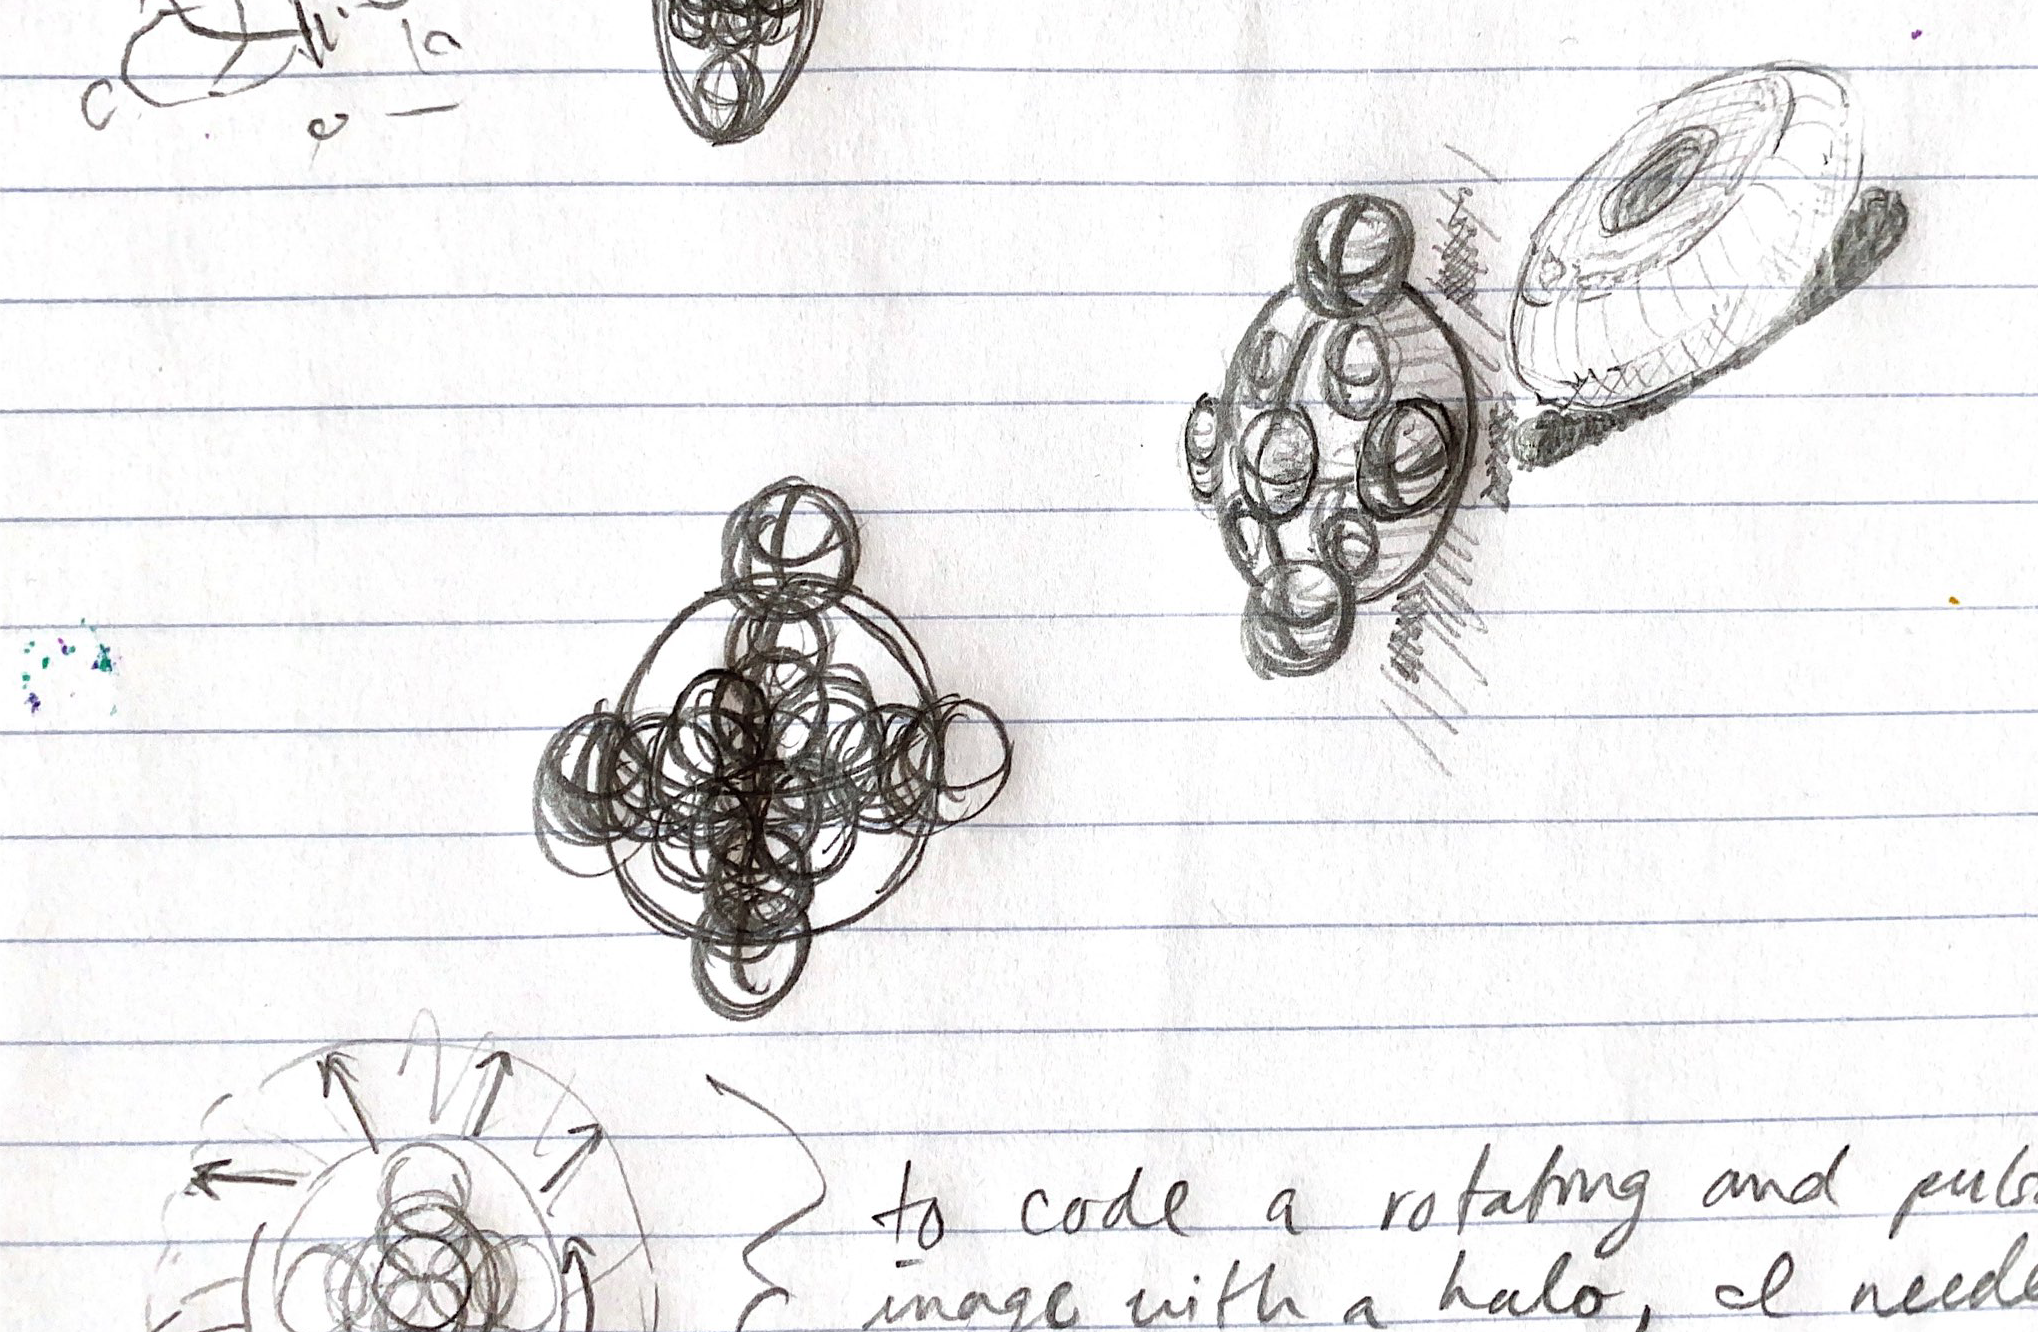 to code a rotating and puls
image with a halo, I neede